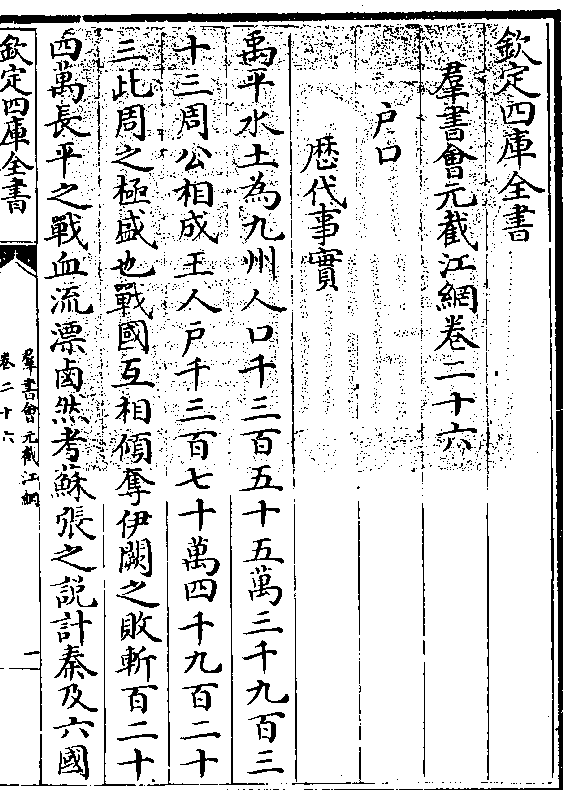 欽定四庫全書
羣書會元截江網卷二十六
户口
歴代事實
禹平水土為九州人口千三百五十五萬三千九百三
十三周公相成王人户千三百七十萬四千九百二十
三此周之極盛也戰國互相傾奪伊闕之敗斬百二十
四萬長平之戰血流漂鹵然考蘇張之説計秦及六國
欽定四庫全書
羣書會元截江網
卷二十六
一